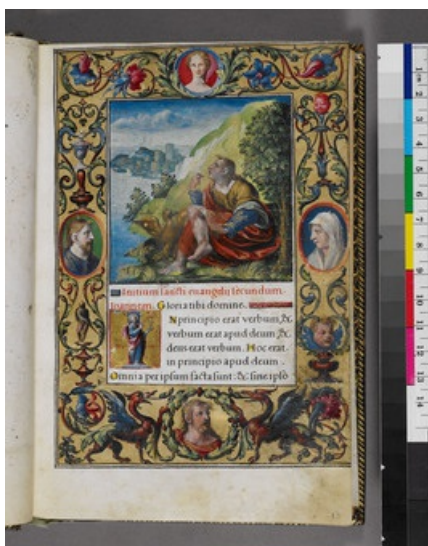 Initium sancti euangelij secundum
Ioannem. Gloria tibi domine.
IN principio erat verbum, &
verbum erat apud deum &
deus erat verbum. Hoc erat
in principio apud deum.
Omnia per ipsum facta sunt: & sine ipso